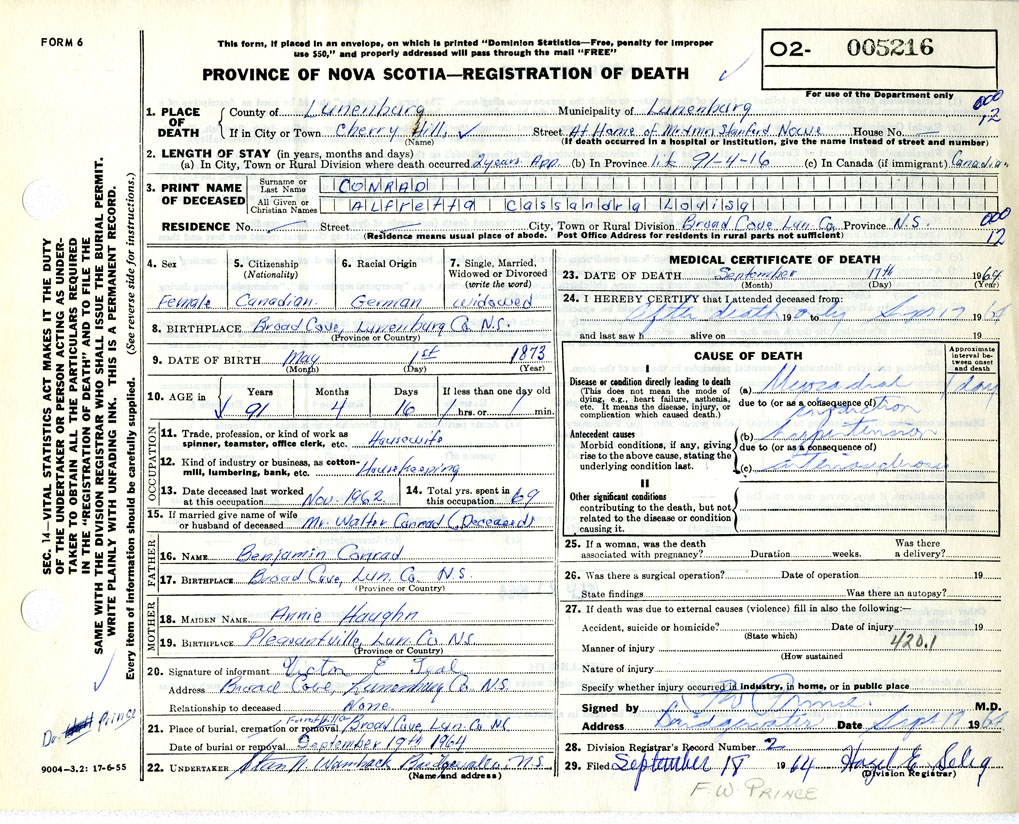 FORM 6
This form, if placed in an envelope, on which is printed "Dominion Statistics—Free, penalty for improper
use $50," and properly addressed will pass through the mail "FREE"
PROVINCE OF NOVA SCOTIA—REGISTRATION OF DEATH
O2- 005216
For use of the Department only
1. PLACE OF DEATH County of Lunenburg Municipality of Lunenburg 000 12
If in City or Town Cherry Hill, Street At Home of Mr & Mrs Stanford Nowe House No.
(Name) (If death occurred in a hospital or institution, give the name instead of street and number)
2. LENGTH OF STAY (in years, months and days)
(a) In City, Town or Rural Division where death occurred 2 years App. (b) In Province life 91-4-16 (c) In Canada (if immigrant) Canadian
3. PRINT NAME OF DECEASED Surname or Last Name CONRAD
All Given or Christian Names Alfretta Cassandra Louisa
RESIDENCE No. Street City, Town or Rural Division Broad Cove Lun. Co. Province N.S. 000 12
(Residence means usual place of abode. Post Office Address for residents in rural parts not sufficient)
4. Sex 5. Citizenship (Nationality) 6. Racial Origin 7. Single, Married, Widowed or Divorced (write the word)
Female Canadian German Widowed
8. BIRTHPLACE Broad Cove, Lunenburg Co. N.S.
(Province or Country)
9. DATE OF BIRTH May 1st 1873
(Month) (Day) (Year)
10. AGE in Years Months Days If less than one day old
91 4 16 hrs. or min.
OCCUPATION
11. Trade, profession, or kind of work as
spinner, teamster, office clerk, etc. Housewife
12. Kind of industry or business, as cotton-
mill, lumbering, bank, etc. Housekeeping
13. Date deceased last worked
at this occupation Nov. 1962 14. Total yrs. spent in this occupation 69
15. If married give name of wife
or husband of deceased Mr. Walter Conrad (Deceased)
FATHER
16. NAME Benjamin Conrad
17. BIRTHPLACE Broad Cove, Lun. Co. N.S.
(Province or Country)
MOTHER
18. MAIDEN NAME Annie Haughn
19. BIRTHPLACE Pleasantville, Lun. Co. N.S.
(Province or Country)
20. Signature of informant Victor E Teal
Address Broad Cove, Lunenburg Co. N.S.
Relationship to deceased None.
21. Place of burial, cremation or removal Broad Cove Lun. Co. N.S.
Date of burial or removal September 19th 1964
22. UNDERTAKER Wamback Bridgewater, N.S.
(Name and address)
MEDICAL CERTIFICATE OF DEATH
23. DATE OF DEATH September 17th 1964
(Month) (Day) (Year)
24. I HEREBY CERTIFY that I attended deceased from:
After death 19 to only Sept 17 1964
and last saw h alive on 19
CAUSE OF DEATH
Approximate interval between onset and death
I
Disease or condition directly leading to death
(This does not mean the mode of
dying, e.g., heart failure, asthenia,
etc. It means the disease, injury, or
complication which caused death.)
(a) Myocardial 1 day
due to (or as a consequence of)
infarction
Antecedent causes
Morbid conditions, if any, giving
rise to the above cause, stating the
underlying condition last.
(b) hypertension
due to (or as a consequence of)
(c)
II
Other significant conditions
contributing to the death, but not
related to the disease or condition
causing it.
25. If a woman, was the death Was there
associated with pregnancy? Duration weeks. a delivery?
26. Was there a surgical operation? Date of operation 19
State findings Was there an autopsy?
27. If death was due to external causes (violence) fill in also the following:—
Accident, suicide or homicide? Date of injury 19
(State which) 420.1
Manner of injury
(How sustained
Nature of injury
Specify whether injury occurred in industry, in home, or in public place
Signed by Prince M.D.
Address Bridgewater Date Sept 17 1964
28. Division Registrar's Record Number 2
29. Filed September 18 1964 Hazel E Selig
(Division Registrar)
F. W. PRINCE
SEC. 14—VITAL STATISTICS ACT MAKES IT THE DUTY
OF THE UNDERTAKER OR PERSON ACTING AS UNDER-
TAKER TO OBTAIN ALL THE PARTICULARS REQUIRED
IN THE "REGISTRATION OF DEATH" AND TO FILE THE
SAME WITH THE DIVISION REGISTRAR WHO SHALL ISSUE THE BURIAL PERMIT.
WRITE PLAINLY WITH UNFADING INK. THIS IS A PERMANENT RECORD.
Every item of information should be carefully supplied. (See reverse side for instructions.)
Dr. Prince
9004—3.2: 17-6-55